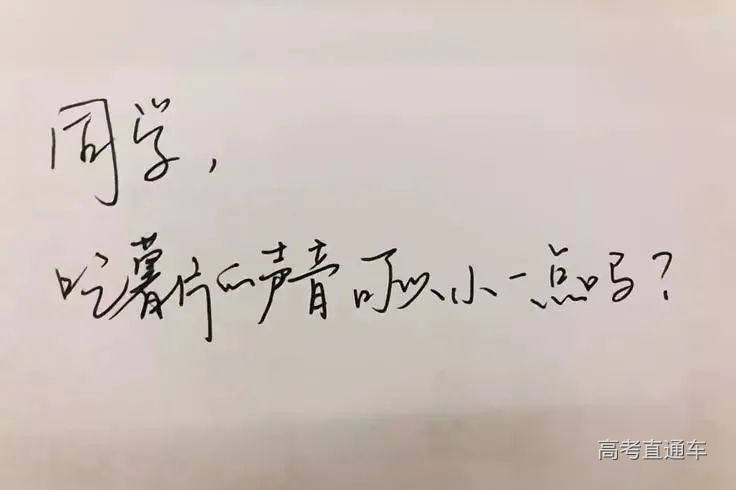 同学，
吃薯片的声音可以小一点吗？
高考直通车